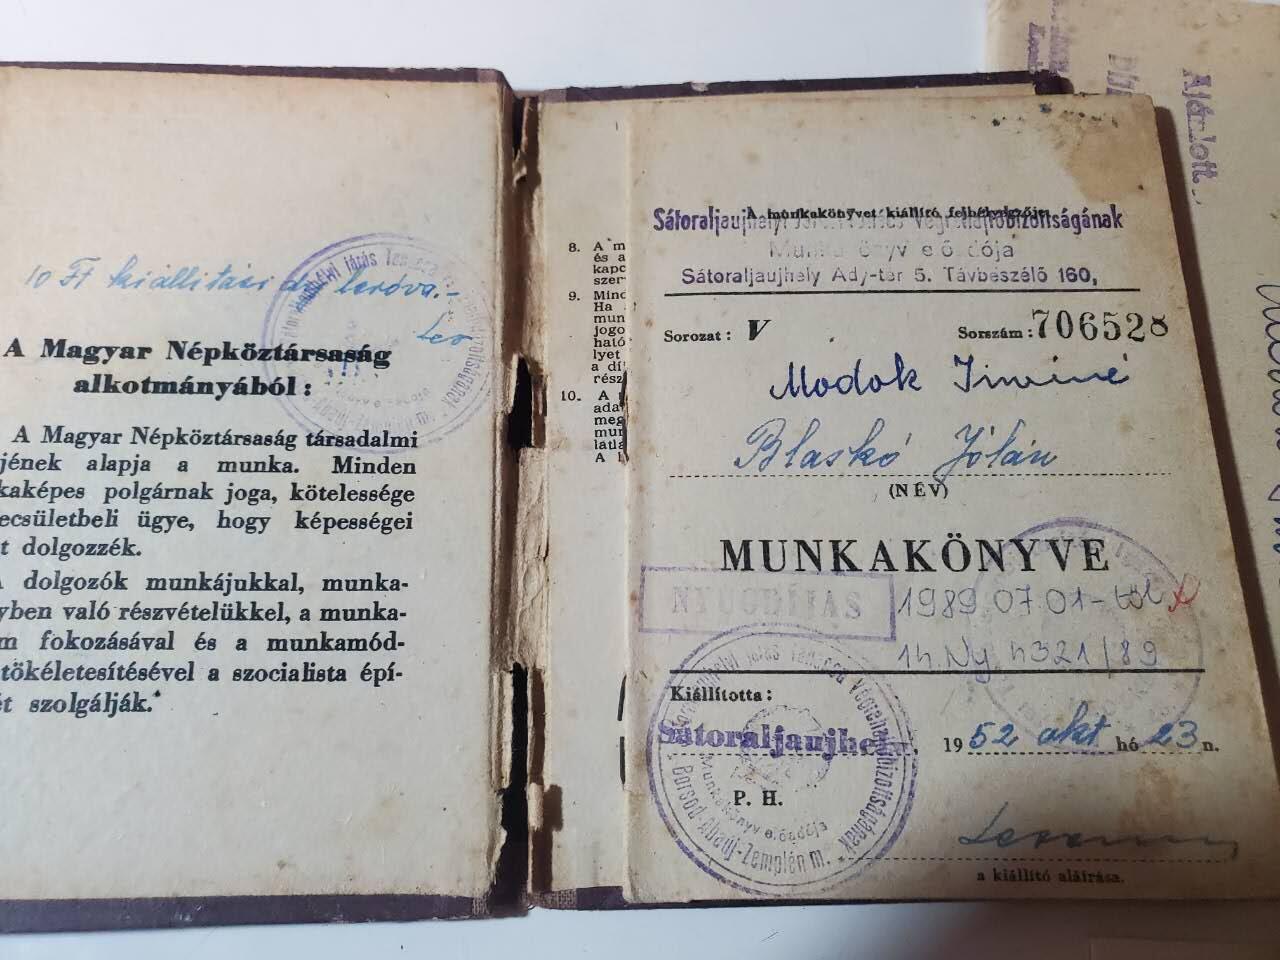 10 Ft kiállítási díj leróva.-
A Magyar Népköztársaság
alkotmányából:
A Magyar Népköztársaság társadalmi
jének alapja a munka. Minden
kaképes polgárnak joga, kötelessége
ecsületbeli ügye, hogy képességei
t dolgozzék.
dolgozók munkájukkal, munka-
yben való részvételükkel, a munka-
m fokozásával és a munkamód-
tökéletesítésével a szocialista épí-
ét szolgálják."
8. A m
és a
kapc
szer
9. Mind
Ha
mun
jogo
ható
lyet
a dí
rész
10. A
ada
meg
mun
latla
A
A munkakönyvet kiállító felhívóje
Sátoraljaujhelyi Járási Tanács Végrehajtóbizottságának
Munkakönyv előadója
Sátoraljaujhely Ady-tér 5. Távbeszélő 160,
Sorozat: V Sorszám: 706528
Modok Imréné
Blaskó Jólán
(NÉV)
MUNKAKÖNYVE
NYUGDÍJAS 1989.07.01-től
14. Ny 4321/89
Kiállította:
Sátoraljaujhely, 1952 okt hó 23 n.
P. H.
Borsod-Abaúj-Zemplén m.
Munkakönyv előadója
a kiállító aláírása.
Ajánlott